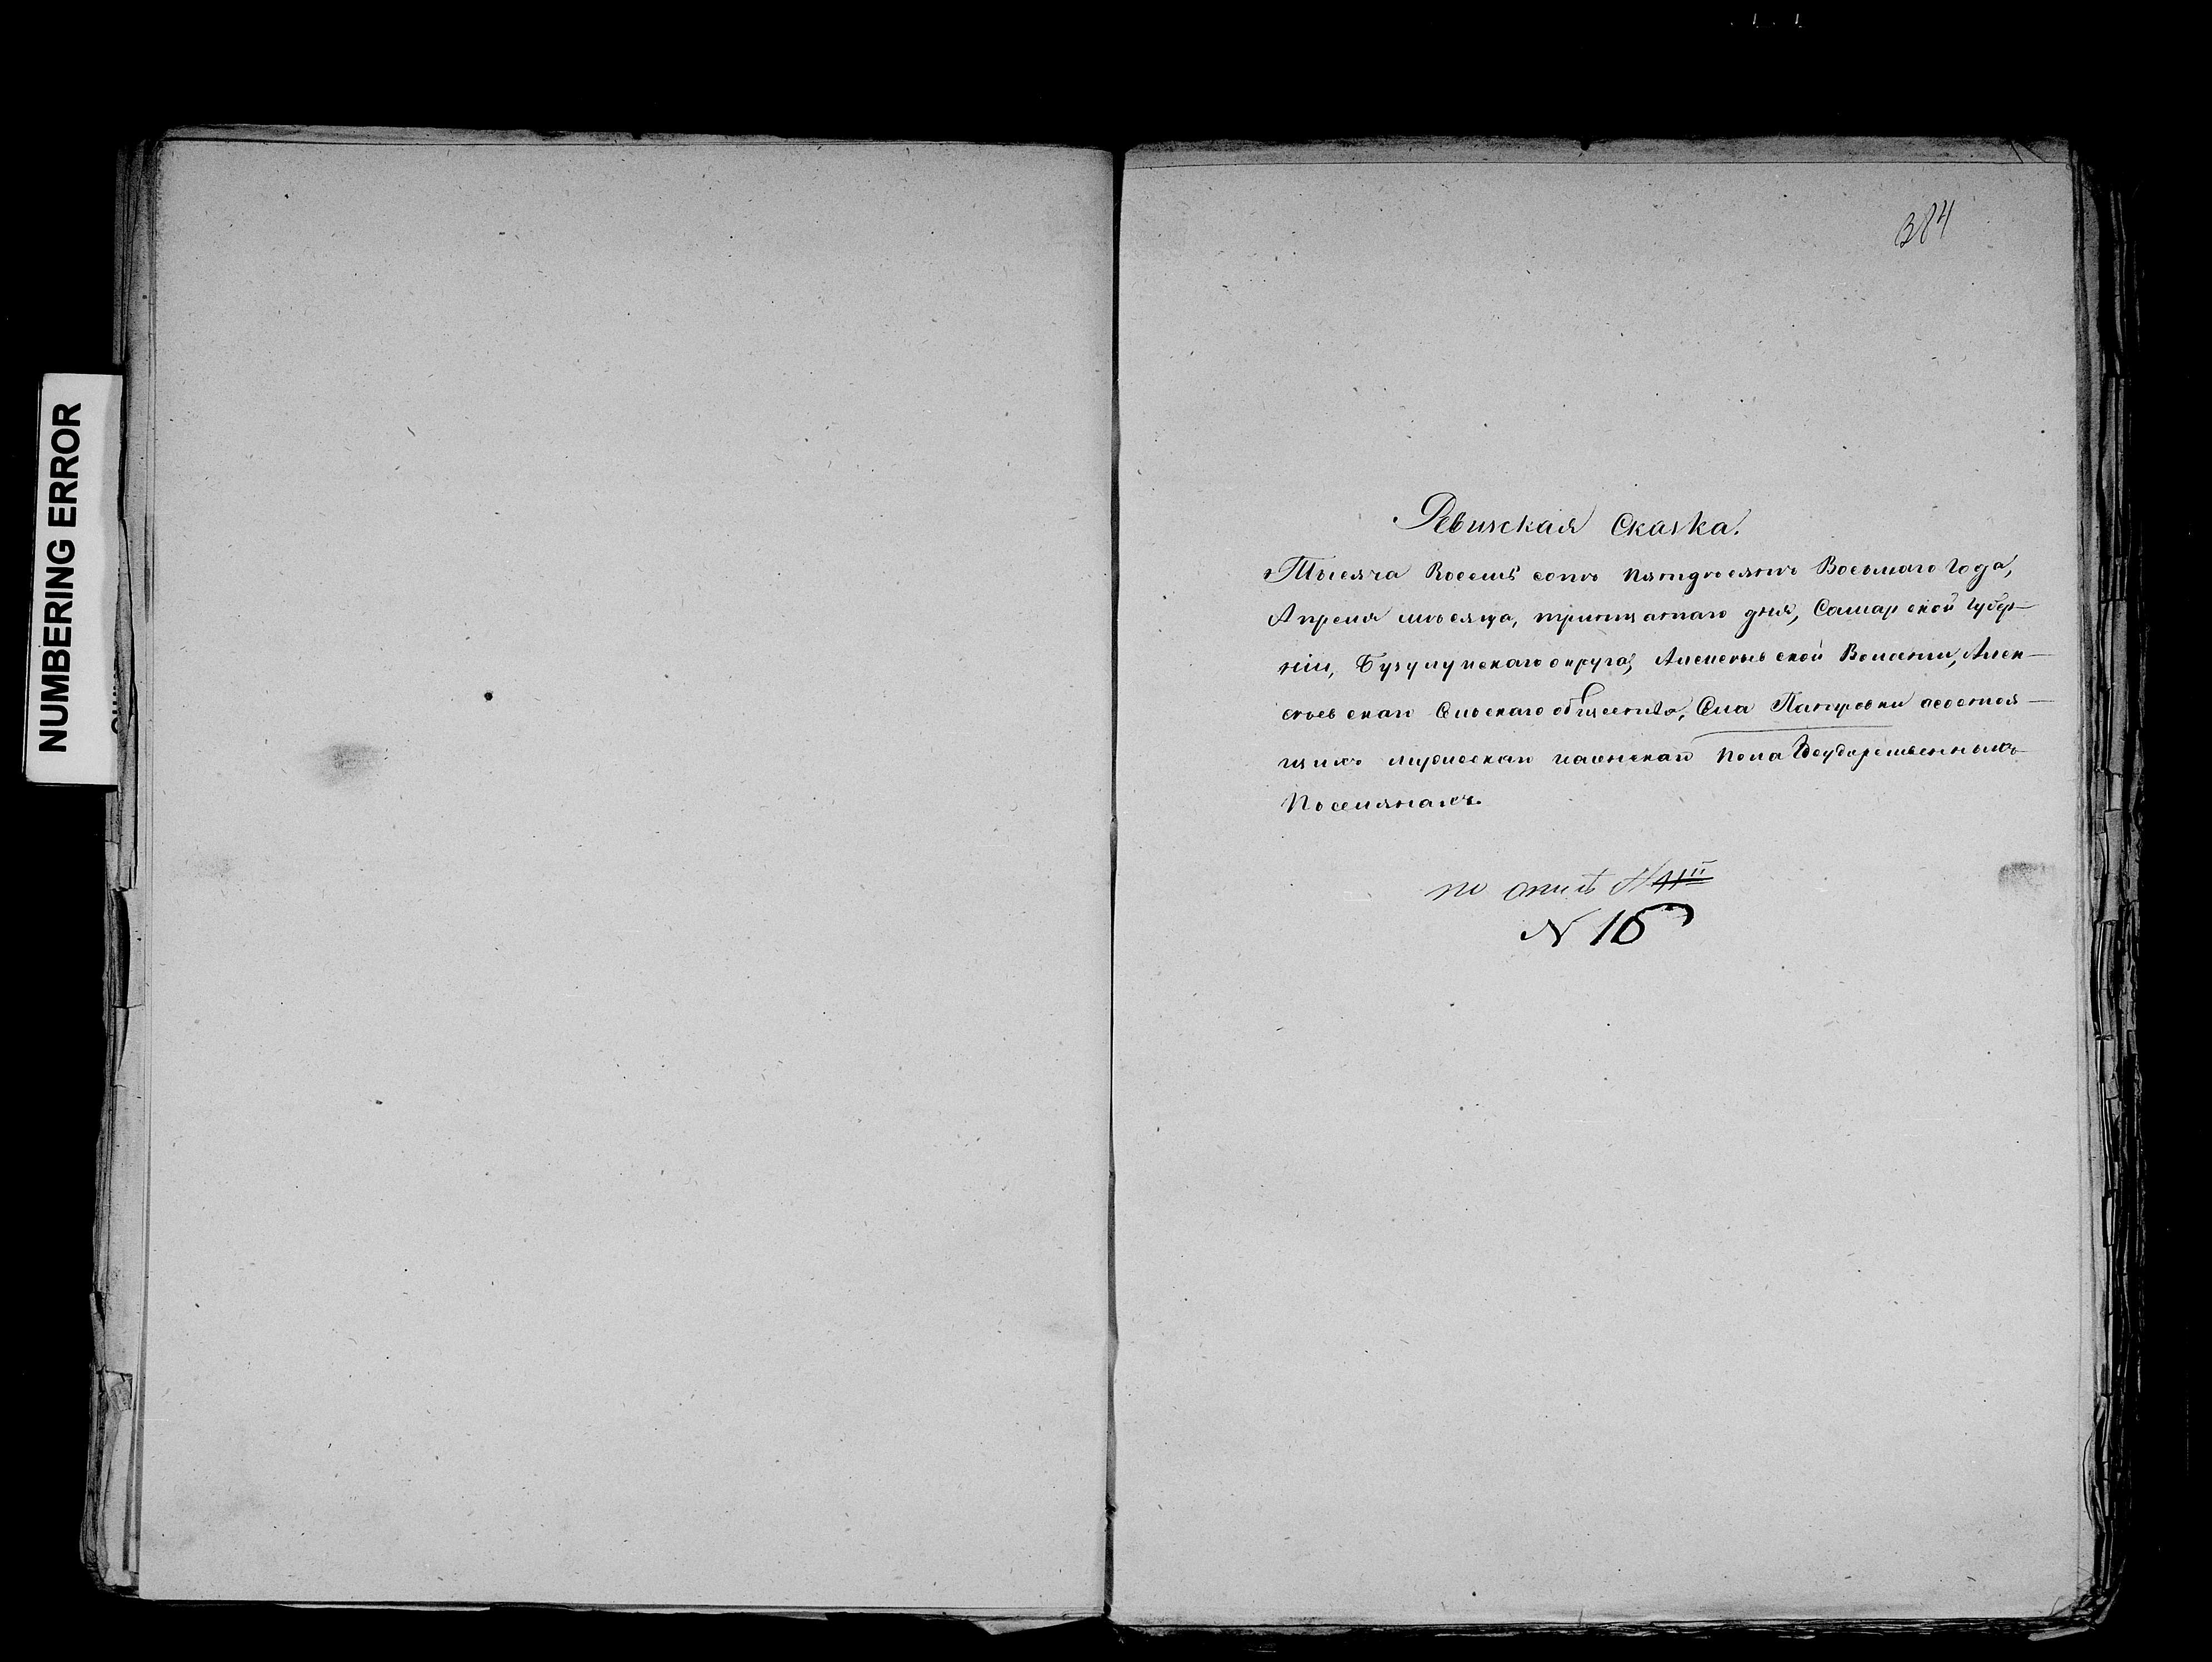 384
NUMBERING ERROR
Ревизская Сказка.
Тысяча Восемь сотъ пятдесятъ Восьмаго Года,
Апреля мѣсяца, тритцатаго дня, Самарской Губер-
ніи, Бузулукскаго округа, Алексѣевской Волости, Алек-
сѣевскаго Сельскаго общества, Села Патровки осостоя-
щихъ мужескаго и женскаго пола Государственныхъ
Поселянахъ.
по описѣ N
N 16